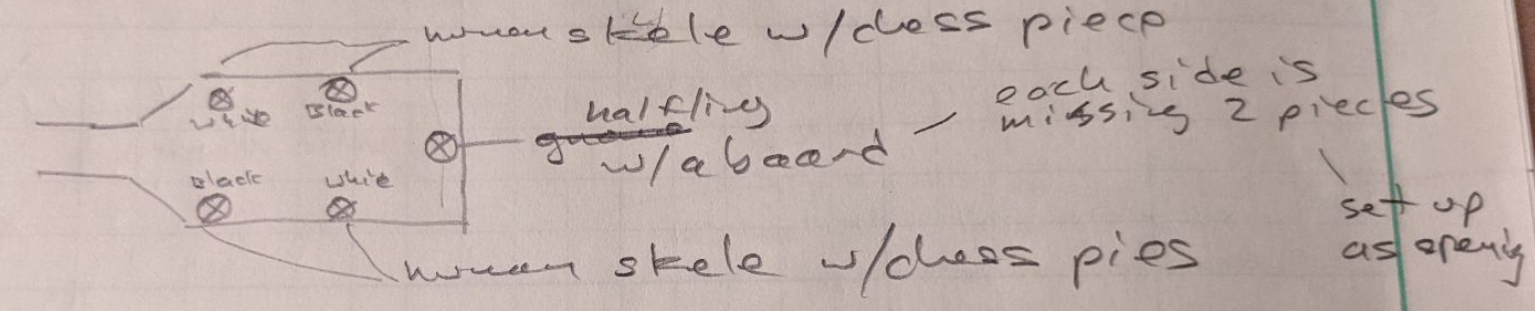 human skele w/chess piece
each side is
missing 2 pieces
White Black
halfling
w/a board
Black White
set up
as openig
human skele w/chess pies